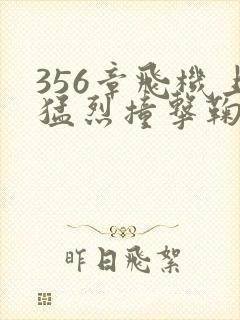 356章飛機上
猛烈撞擊鞠
昨日飛絮